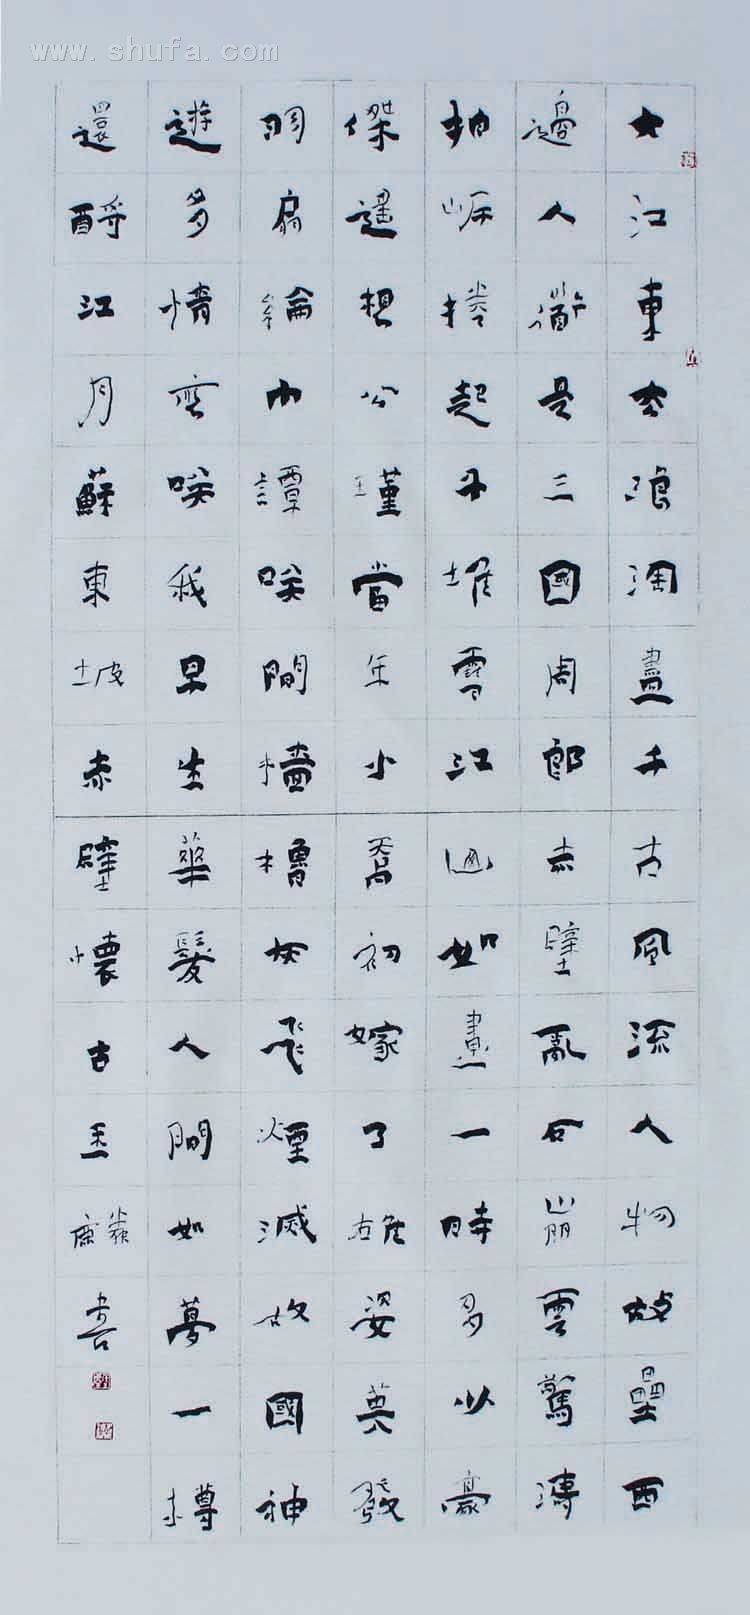 www.shufa.com
大江東去浪淘盡千古風流人物故壘西
邊人衟是三國周郎赤壁亂石崩雲驚濤
拍岸捲起千堆雪江山如畫一時多少豪
傑遙想公瑾當年小喬初嫁了雄姿英發
羽扇綸巾譚咲間檣櫓灰飛煙滅故國神
遊多情應咲我早生華髮人間如夢一樽
還酹江月蘇東坡赤壁懷古書